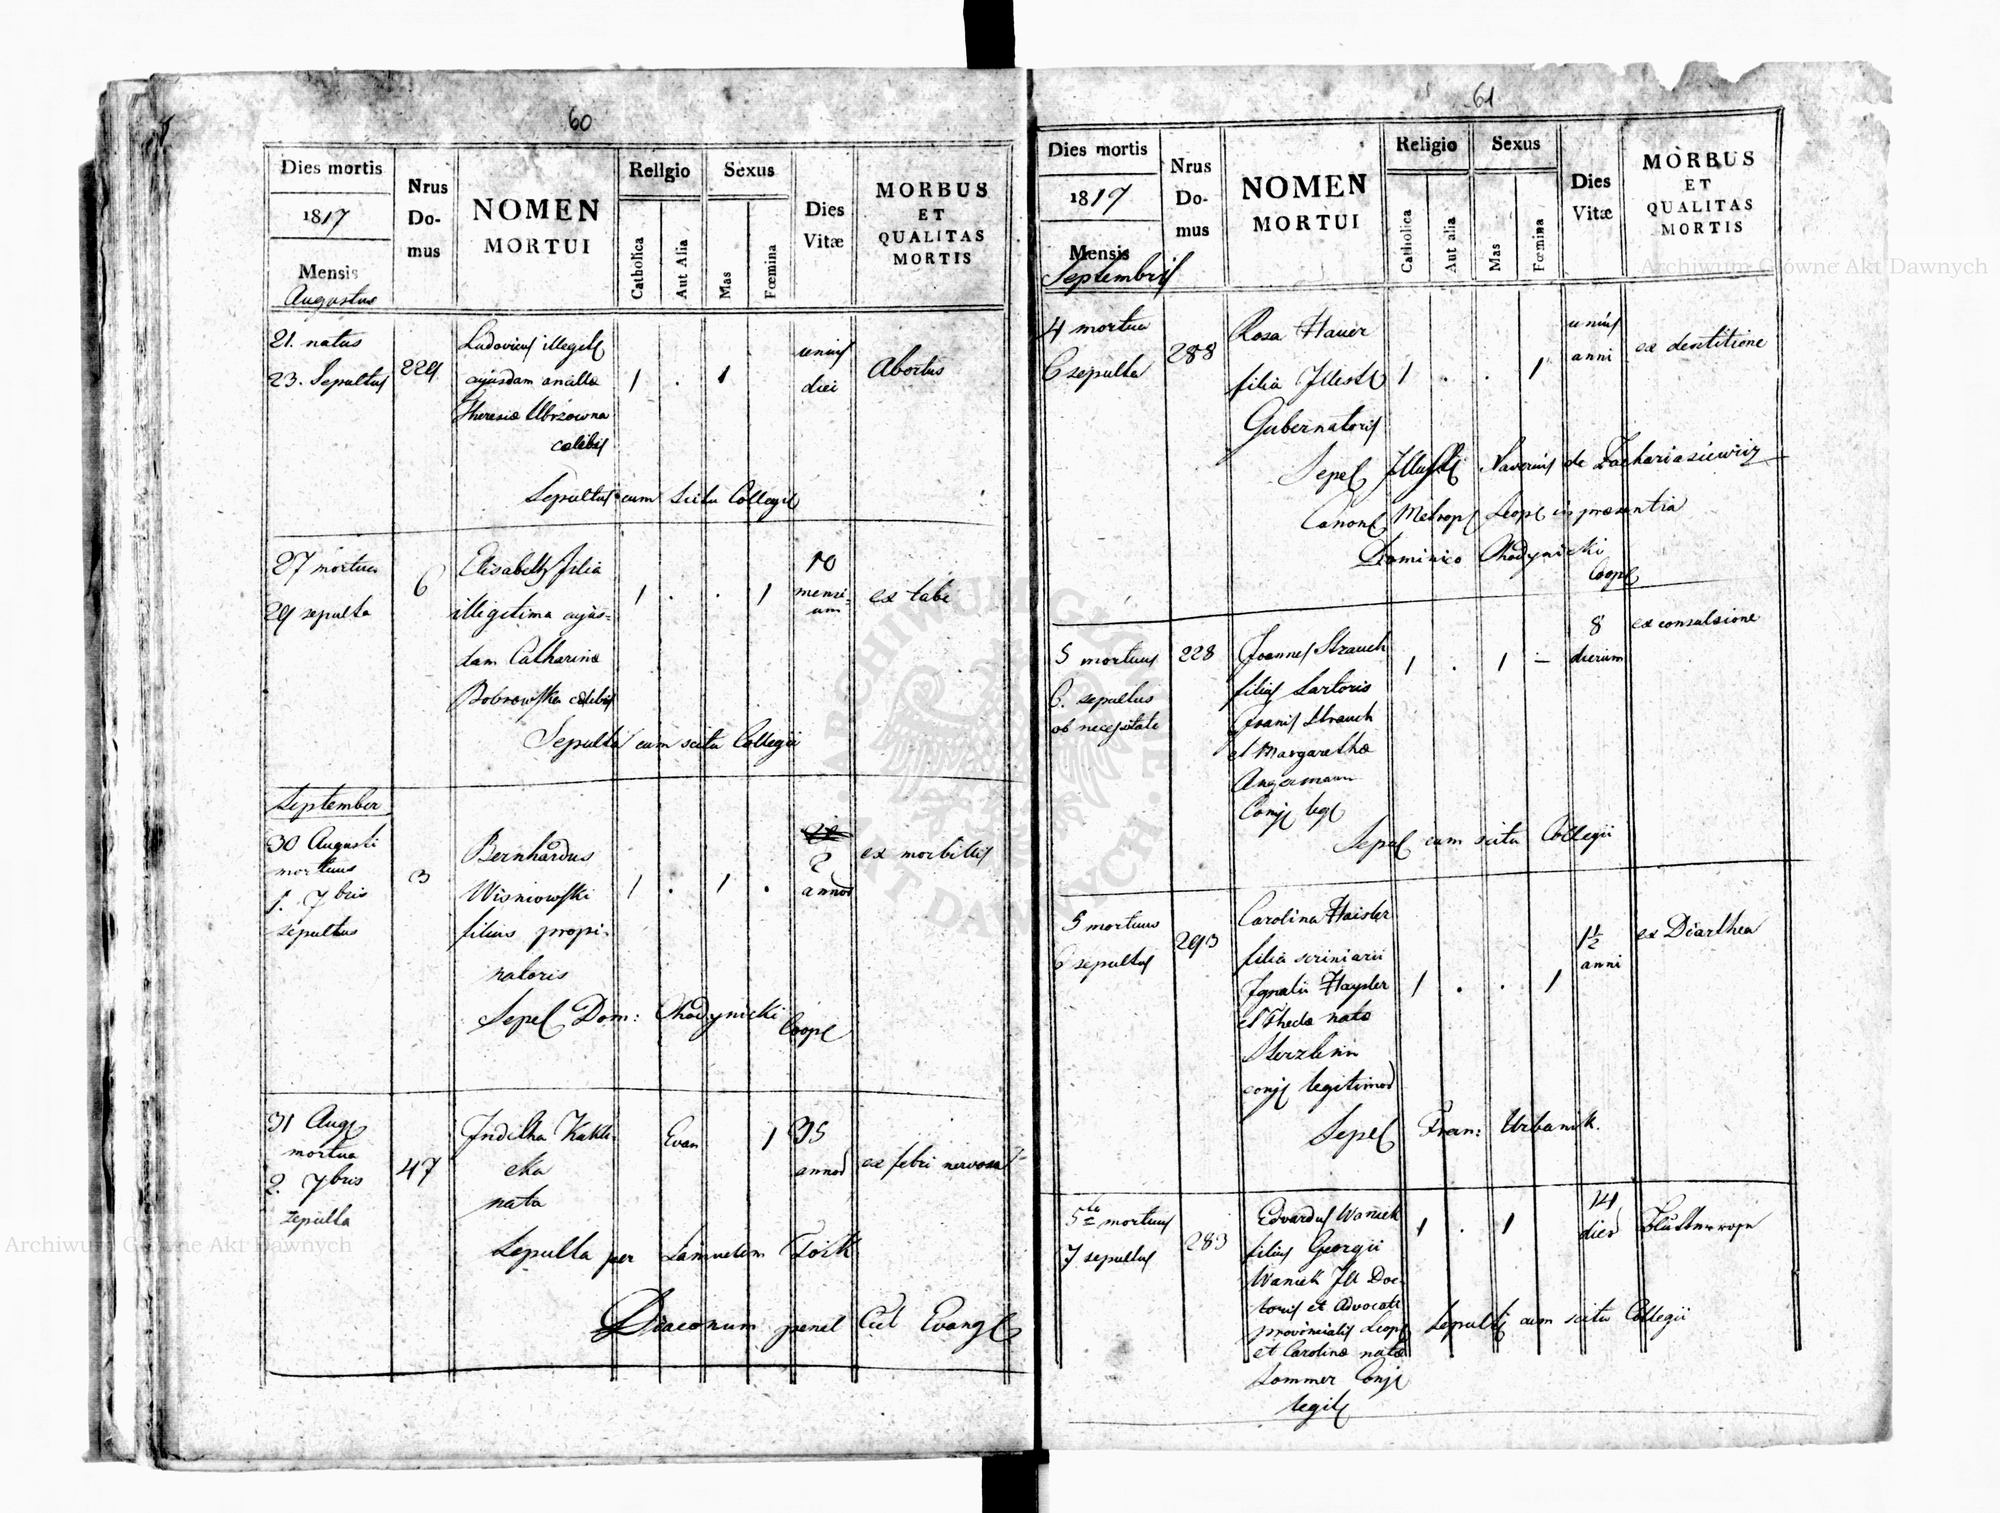 60
Dies mortis
1817
Mensis
Augustus
Nrus
Do-
mus
NOMEN
MORTUI
Religio
Catholica
Aut Alia
Sexus
Mas
Fœmina
Dies
Vitæ
MORBUS
ET
QUALITAS
MORTIS
21. natus
23. Sepultus
229
Ludovicus illegit
cujusdam ancillæ
Theresiæ
cælibis
1 . 1 .
unius
diei
Abortus
Sepultus cum scitu Collegii
27 mortua
29 sepulta
6
Elisabeth filia
illigitima cujus=
dam Catharinæ
Bobrowska cælibis
1 . . 1
10
mensi=
um
ex tabe
Sepulta cum scitu Collegii
September
30 Augusti
mortuus
1. 7bris
sepultus
3
Bernhardus
Wisniowski
filius propi-
natoris
1 . 1 .
2
annor
ex morbillis
Sepel Dom: Chodynicki
Coope
31 Aug
mortua
2. 7bris
sepulta
47
nata
Evan
1
35
annor
ex febri nervosa
Sepulta per Samuelem
Diaconum penel Evang
61
Dies mortis
1817
Mensis
Septembris
Nrus
Do-
mus
NOMEN
MORTUI
Religio
Catholica
Aut alia
Sexus
Mas
Fœmina
Dies
Vitæ
MORBUS
ET
QUALITAS
MORTIS
4 mortua
6 sepulta
288
Rosa Hauer
filia Illust
Gubernatoris
1 . . 1
unius
anni
ex dentitione
Sepel Illust Xaverius de Zachariasiewicz
Canon Metrop Leop in præsentia
Dominico Chodynicki
Coope
5 mortuus
6. sepultus
ob necessitate
228
Joannes Strauch
filius Sartoris
Joanis Strauch
et Margarethæ
Angermann
Conj leg
1 . 1 –
8
dierum
ex convulsione
Sepul cum scitu Collegii
5 mortuus
6 sepultus
293
Carolina Haisler
filia scriniarii
Ignatii Haysler
et Theclæ natæ
conj legitimor
1 . . 1
1½
anni
ex Diarthea
Sepel Fran: Urbanik.
5te mortuus
7 sepultus
283
Edvardus Waniek
filius Georgii
Waniek Ill Doc-
toris et Advocati
provincialis Leop
et Carolinæ natæ
Sommer Conj
legit
1 . 1
14
dier
Sepult cum scitu Collegii
Archiwum Główne Akt Dawnych
Archiwum Główne Akt Dawnych
ARCHIWUM GŁÓWNE
AKT DAWNYCH